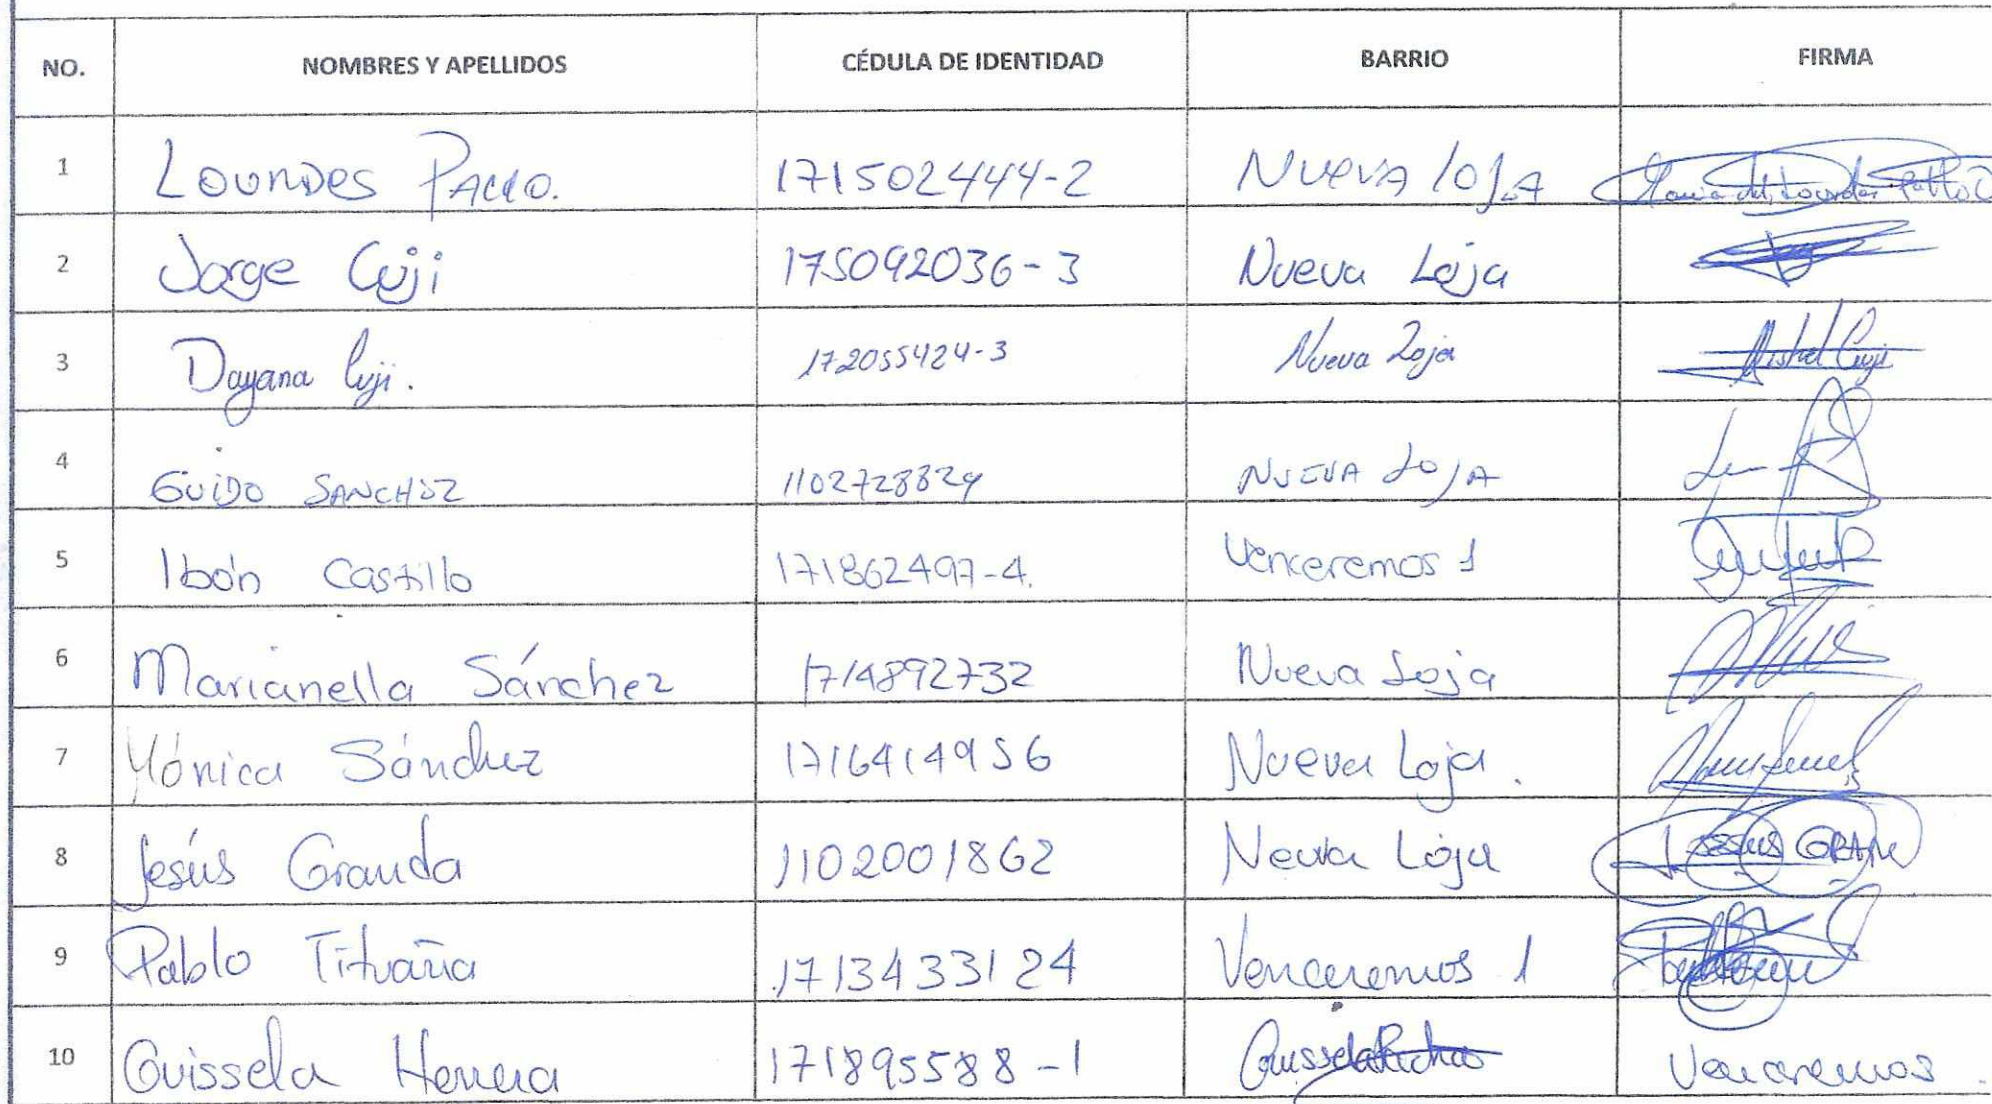 NO. NOMBRES Y APELLIDOS CÉDULA DE IDENTIDAD BARRIO FIRMA
1 Lourdes 171502444-2 Nueva Loja
2 Jorge Cuji 175092036-3 Nueva Loja
3 Dayana Cuji. 172055424-3 Nueva Loja Mishel Cuji
4 GUIDO SANCHEZ 1102728829 NUEVA LOJA
5 Ibón Castillo 171862497-4. Venceremos 1
6 Marianella Sánchez 1714892732 Nueva Loja
7 Mónica Sánchez 1716414956 Nueva Loja.
8 Jesús Granda 1102001862 Neuva Loja JESUS GRAN
9 Pablo Tituaña 1713433124 Venceremos 1
10 Guissela Herrera 171895588-1 Guissela Venceremos.